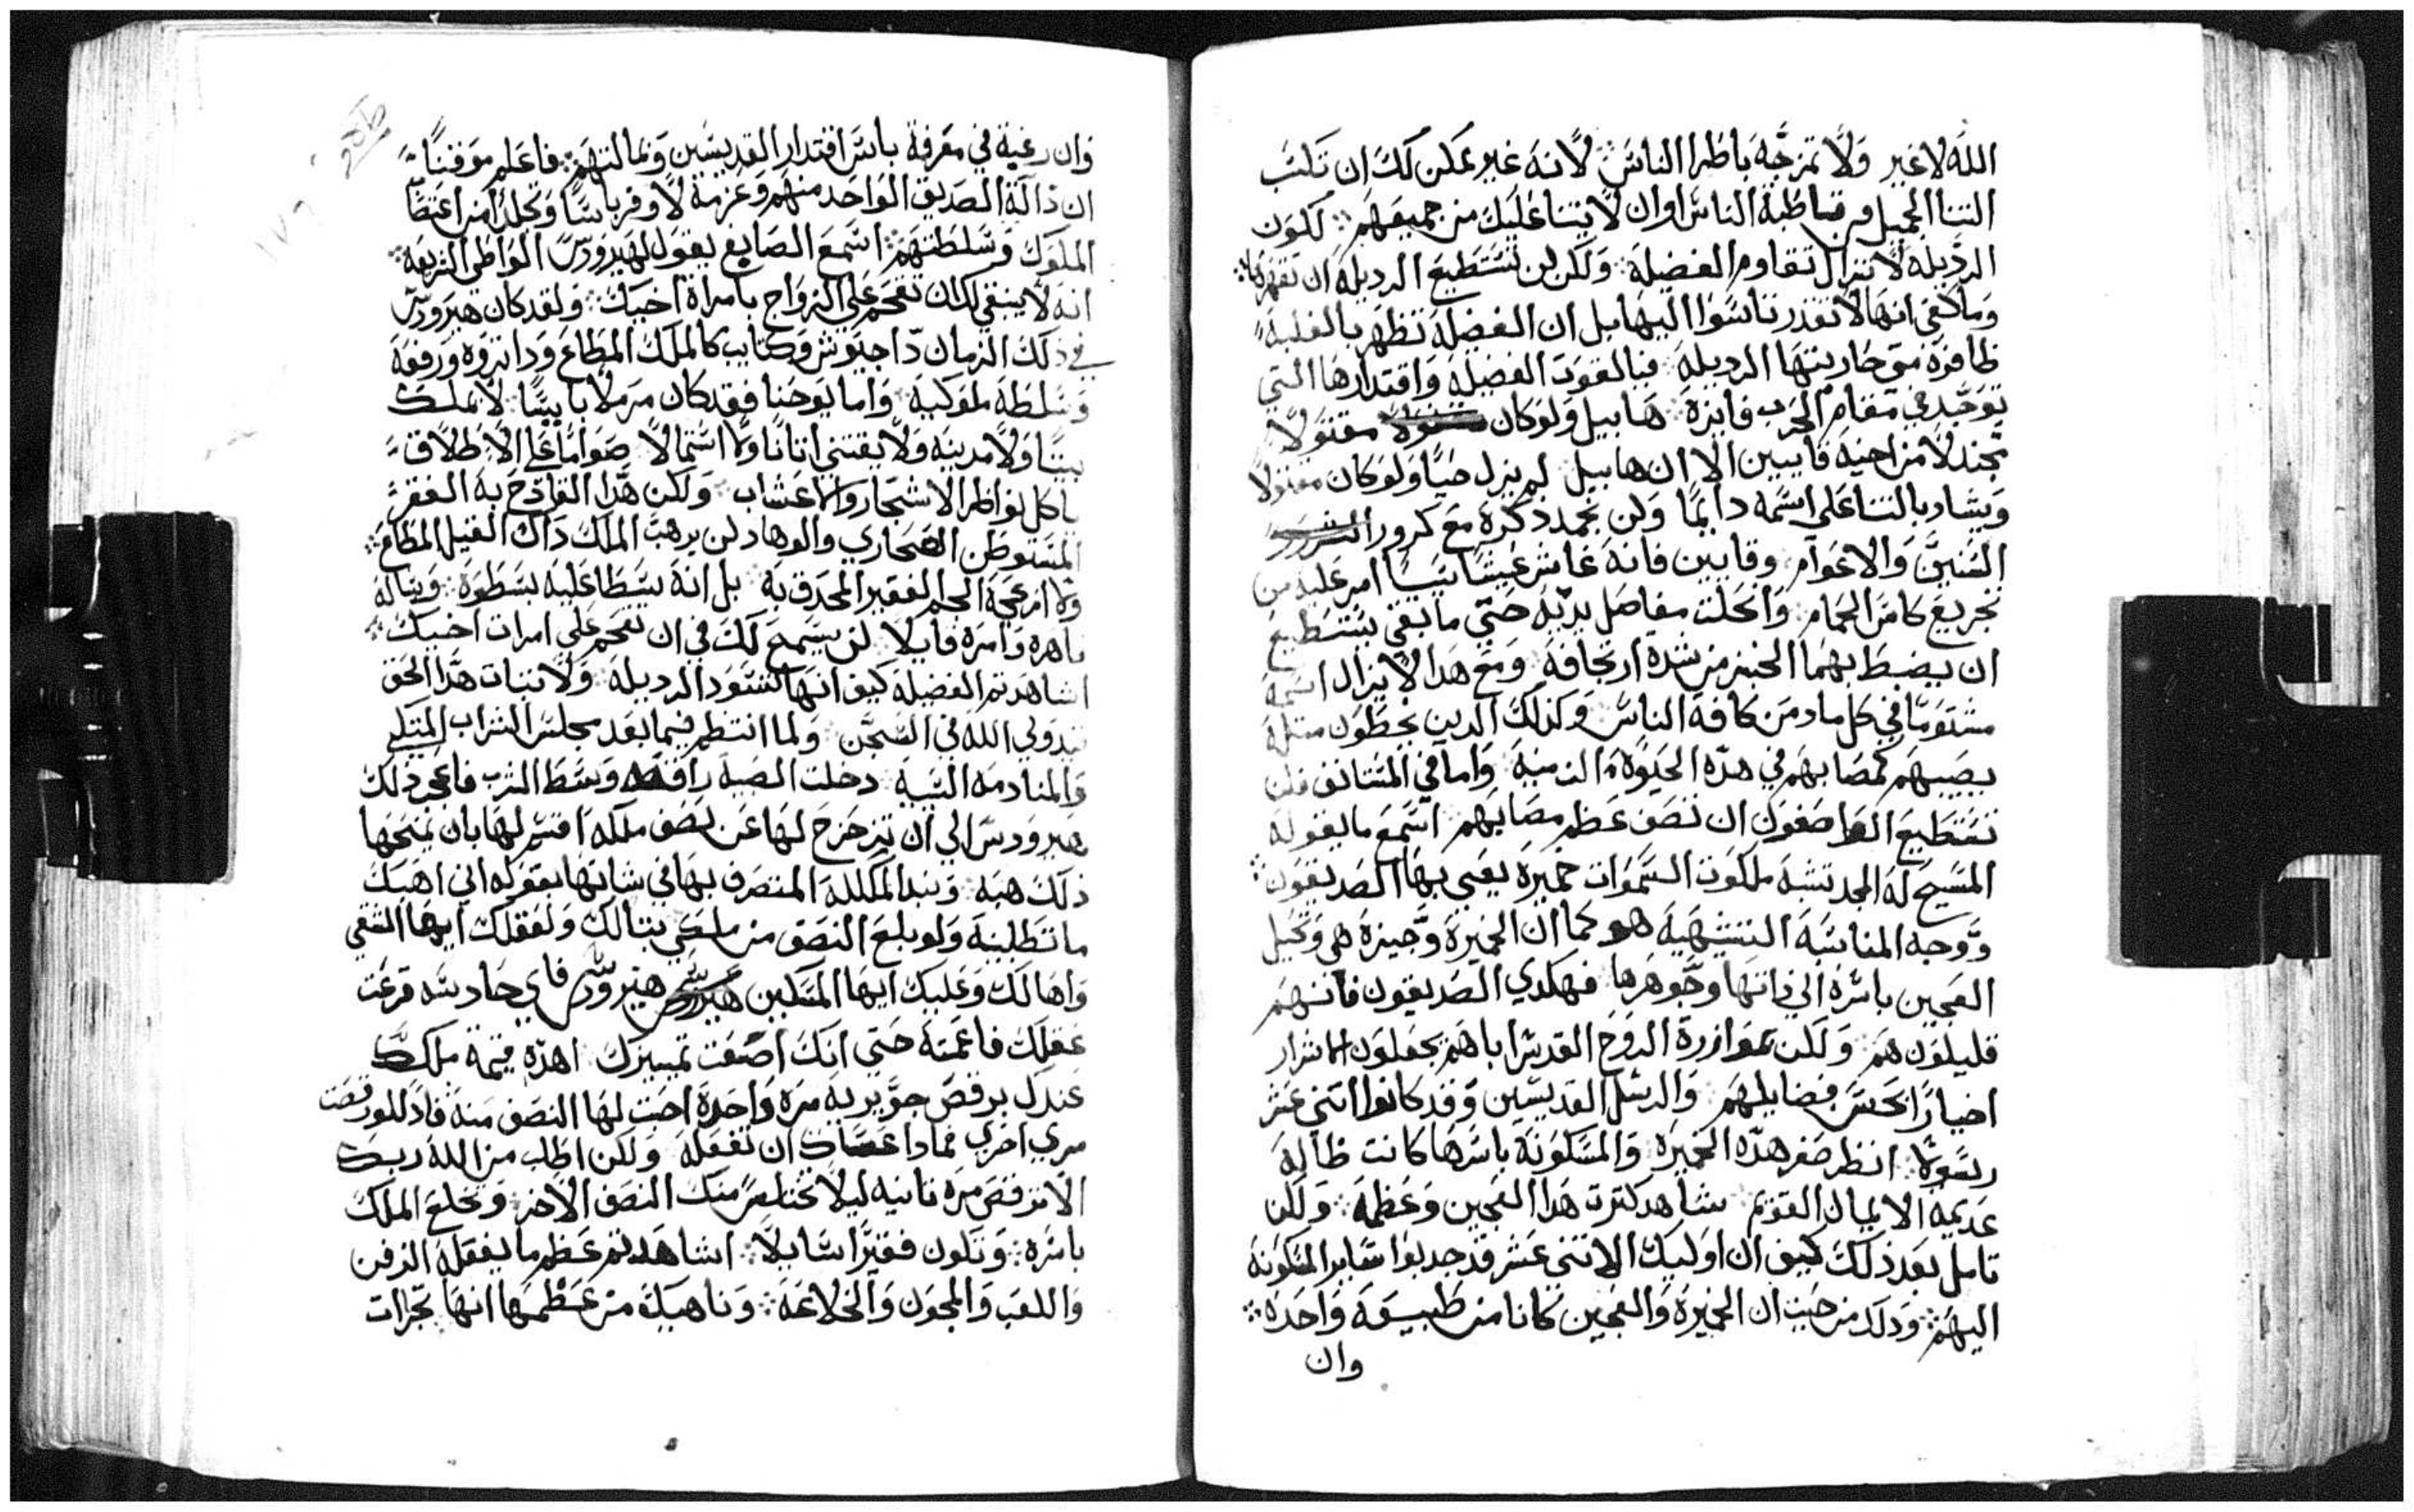 الله لا غير ولا تمزجه باطرا الناس لانه غير ممكن لك ان تكتب
الثنا الجميل من قاطبة الناس او ان لا يثنا عليك من جميعهم لكون
الرديله لا تزال تقاوم الفضيله ولكن لن تستطيع الرديله ان تقهرها
وما كفى انها لا تقدر تاسوا اليها بل ان الفضيله تظهر بالغلبة
ظافرة متى حاربتها الرديله فيا لقوت الفضيله واقتدارها التي
توجد في مقام الحرب فايزة هابيل ولو كان مقتولا
مجندلا من اخيه قايين الا ان هابيل لم يزل حيا ولو كان مقتولا
ويشار بالثنا على اسمه دايما ولن يخمد ذكره مع كرور
السنين والاعوام وقايين فانه عاش عيشا امر عليه من
تجريع كاس الحمام وانحلت مفاصل يديه حتى ما بقى يستطيع
ان يضبط بهما الخبز من شدة ارتجافه ومع هدا لا يزال اسمه
مشتوما في كل ماد من كافة الناس وكذلك الدين يخطون مثله
يصيبهم كمصابهم في هده الحيوة الزمنية واما في المستانف فلن
تستطيع الواصفون ان تصف عظم مصابهم اسمع ما يقوله
المسيح له المجد تشبه ملكوت السموات خميرة يعني بها الصديقون
ووجه المناسبة التشبهية هو كما ان الخميرة وجيزة هي وتحيل
العجين باسره الى ذاتها وجوهرها فهكدي الصديقون فانهم
قليلون هم ولكن بموازرة الروح القدس اياهم يجعلون الاشرار
اخيارا بحسن فضايلهم والرسل القديسين وقد كانوا اثني عشر
رسولا انظر صغر هده الخميرة والمسكونة باسرها كانت ظاله
عديمة الايمان القويم شاهد كثرت هدا العجين وعظمه ولكن
تامل بعد ذلك كيف ان اوليك الاثني عشر قد جدبوا ساير المسكونة
اليهم ودلك من حيث ان الخميرة والعجين كانا من طبيعة واحده
وان
وان رغبة في معرفة باس اقتدار القديسين فاعلم موقنا
ان دالة الصديق الواحد منهم وعزمه لاوفر باسا وتجلدا من
الملوك وسلطتهم اسمع الصابغ يقول لهيرودس الواطى الشريعة
انه لا ينبغي لك ان تقحم على الزواج بامراة اخيك ولقد كان هيرودس
في ذلك الزمان كالملك المطاع ودا ثروة ورفعه
وسلطة ملوكية واما يوحنا فقد كان مرملا بايسا لا يملك
بيتا ولا مدينه ولا يقتني اتانا ولا صواما على الاطلاق
ياكل نواظر الاشجار والاعشاب ولكن هدا القادح به الفقر
المستوطن الصحاري والوهاد لن يرهب الملك داك المطاع
ولا ازعجه الجم الغفير المحدق به بل انه يسطا عليه بسطوة
وامره قايلا لن يسمح لك في ان تقحم على امرات اخيك
اشاهدتم الفضيلة كيف انها تستود الرديله ولا تنبات هدا الحق
ولي الله في السجن ولما انتظم فيما بعد مجلس الشراب
والمنادمه دخلت الصبية راقصة وسط الشرب فاعجب دلك
هيرودس الى ان تزحزح لها عن نصف ملكه اقسم لها بان يمنحها
ذلك هبة المتصرف بها في شانها بقوله اني اهبك
ما تطلبينه ولو بلغ النصف من ملكي تبا لك ولعقلك ايها الشقي
واها لك وعليك ايها المسكين هيرودس فاي حادثه قرعت
عقلك فاعمته حتى انك اضعت تمييزك اهده قيمة ملكك
عندك برقص جويريه مرة واحدة احبت لها النصف منه فادا لو رقصت
مري اخري فمادا عساك ان تفعله ولكن اطلب من الله ربك
الا ترقص مرة تانيه ليلا تختلس منك النصف الاخر وتخلع الملك
باسره وتكون فقيرا سايلا اشاهدتم عظم ما يفعله الزفن
واللعب والمجون والخلاعة وناهيك من عظمها انها تجرات